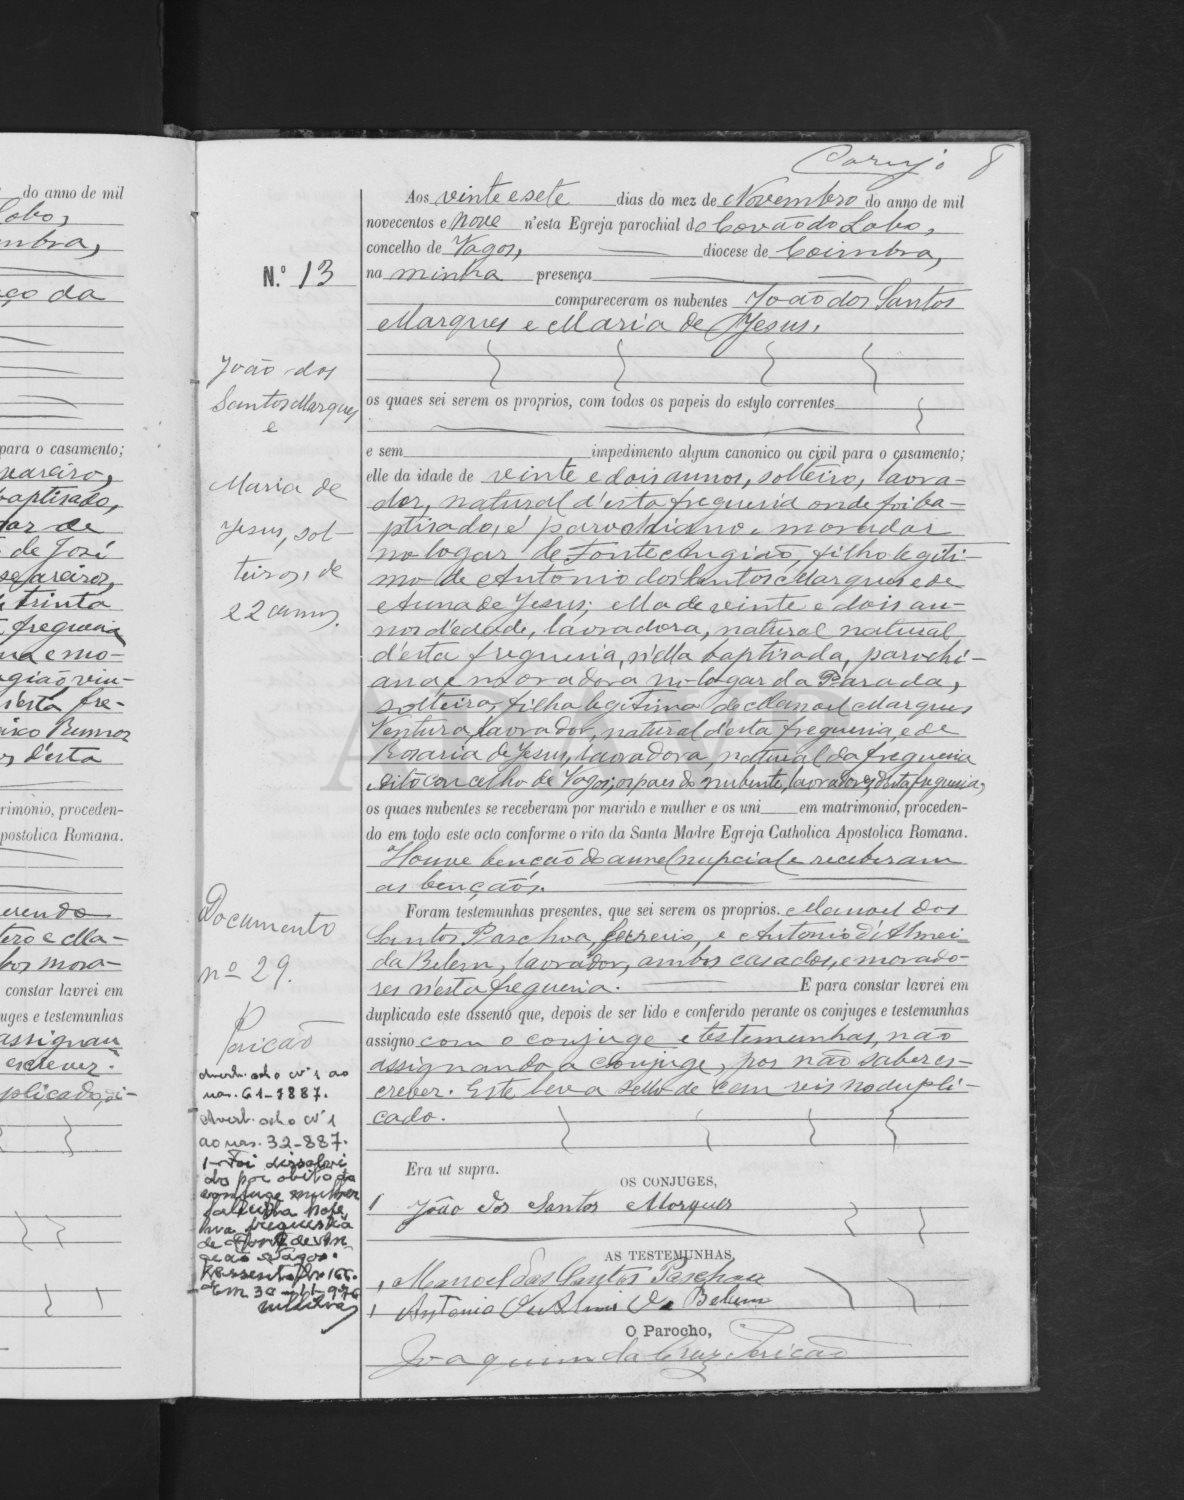 do anno de mil
Lobo,
mbra,
ço da
para o casamento;
vareiro,
baptisado,
dor de
de José
seareiros,
trinta
freguesia
na e mo-
gião vin-
n'esta fre-
isco Rumor
os d'esta
rimonio, proceden-
postolica Romana.
erendo
tero e Ma-
bos mora-
constar lavrei em
uges e testemunhas
assignam
escrever.
plicado, di-
8
N.º 13
João dos
Santos Marques
e
Maria de
Jesus, sol-
teiros, de
22 annos.
Documento
nº 29.
Pericão
Averb. osho nº 1 ao
nas. 61-1887.
Averb. osho nº 1
ao nas. 32-887.
1- Foi dissolvi
do por obito do
conjuge mulher
fallecida nesta
freguesia
de Fonte de An
geão Vagos.
Assento nº 166.
Em 30-11-976
Aos vinte e sete dias do mez de Novembro do anno de mil
novecentos e nove n'esta Egreja parochial do Covão do Lobo,
concelho de Vagos, diocese de Coimbra,
na minha presença
compareceram os nubentes João dos Santos
Marques e Maria de Jesus,
os quaes sei serem os proprios, com todos os papeis do estylo correntes
e sem impedimento algum canonico ou civil para o casamento;
elle da idade de vinte e dois annos, solteiro, lavra-
dor, natural d'esta freguesia onde foi ba-
ptisado, é parochiano e morador
no logar de Fonte Angião, filho legiti-
mo de Antonio dos Santos Marques e de
Anna de Jesus; ella de vinte e dois an-
nos d'edade, lavradora, natural natural
d'esta freguesia, n'ella baptisada, parochi-
ana e moradora no logar da Parada,
solteira, filha legitima de Manoel Marques
Ventura, lavrador, natural d'esta freguesia, e de
Rosaria de Jesus, lavradora, natural da freguesia
dito concelho de Vagos; os paes do nubente, lavradores, d'esta freguesia,
os quaes nubentes se receberam por marido e mulher e os uni em matrimonio, proceden-
do em todo este acto conforme o rito da Santa Madre Egreja Catholica Apostolica Romana.
Houve benção do annel nupcial e receberam
as bençãos.
Foram testemunhas presentes, que sei serem os proprios, Manoel dos
Santos Paschoa, ferreiro, e Antonio d'Almei-
da Belem, lavrador, ambos casados, e morado-
res n'esta freguesia. E para constar lavrei em
duplicado este assento que, depois de ser lido e conferido perante os conjuges e testemunhas
assigno com o conjuge e testemunhas, não
assignando a conjuge, por não saber es-
crever. Este leva sello de cem reis no dupli-
cado.
Era ut supra.
OS CONJUGES,
João dos Santos Marques
AS TESTEMUNHAS,
Manoel dos Santos Paschoa
Antonio de Almeida Belem
O Parocho,
Joaquim da Cruz Pericão